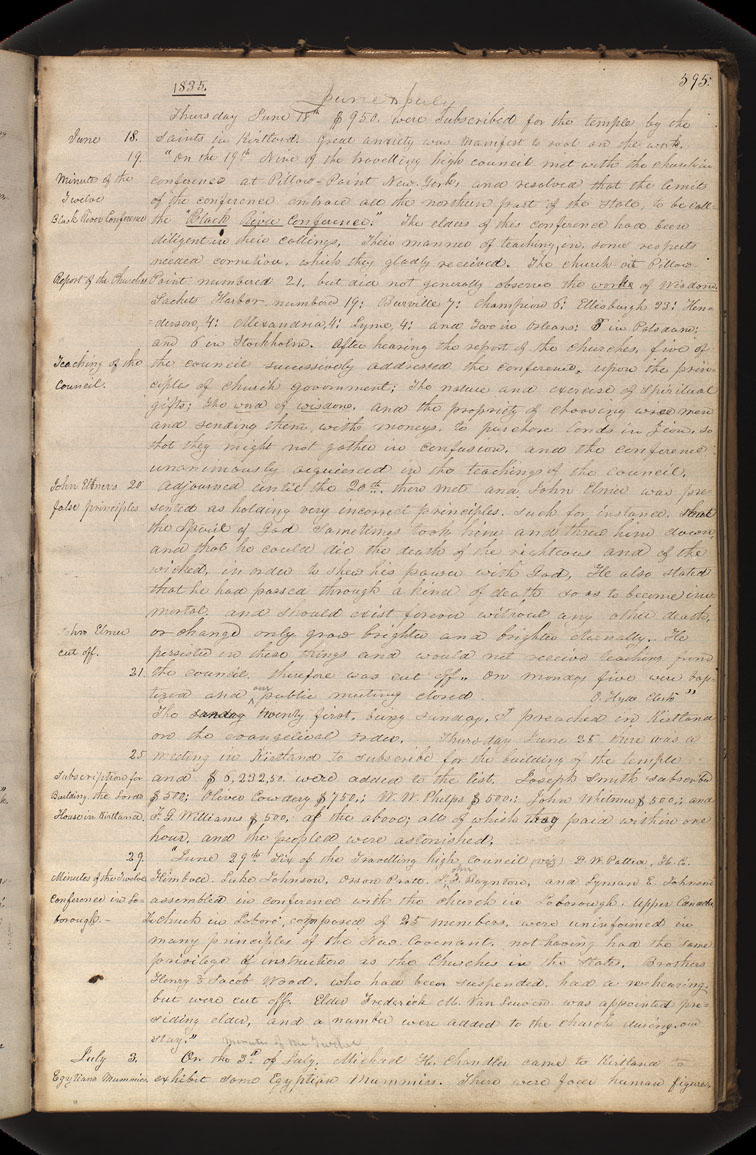 1835.
595.
June & July
Thursday June 18th $950. were subscribed for the temple by the
June 18. saints in Kirtland. Great anxiety was manifest to roll on the work.
19. "On the 19th Nine of the travelling high council met with the church in
Minutes of the Twelve conference at Pillow-Point New York, and resolved that the limits
of the conference embrace all the northern part of the State, to be call-
Black River Conference the "Black River Conference." The elders of this conference had been
diligent in their callings. Their manner of teaching, in some respects
needed correction, which they gladly received. The church at Pillow
Report of the Churches Point numbered 21, but did not generally observe the words of Wisdom.
Sackets Harbor numbered 19; Burville 7; Champion 6; Ellisburgh 33; Hen-
derson, 4; Alexandria, 4; Lyme, 4; and Two in Orleans; in Potsdam;
and 6 in Stockholm. After hearing the report of the churches, five of
Teaching of the Council. the council successively addressed the conference, upon the prin-
ciples of church government; the nature and exercise of Spiritual
gifts; the word of wisdom, and the propriety of choosing wise men
and sending them with moneys, to purchase lands in Zion, so
that they might not gather in confusion, and the conference
unanimously acquiesced in the teachings of the council.
John Elmer's false principles 20 Adjourned until the 20th. then met and John Elmer was pre-
sented as holding very incorrect principles. Such for instance, that
the Spirit of God sometimes took him and threw him down
and that he could die the death of the righteous and of the
wicked, in order to shew his power with God, He also stated
that he had passed through a kind of death so as to become im-
mortal, and should exist forever without any other death,
John Elmer cut off. or change only grow brighter and brighter eternally. He
persisted in these things and would not receive teaching from
21. the council, therefore was cut off. On monday five were bap-
tized and our public meeting closed. O. Hyde Clerk"
The sunday twenty first, being sunday, I preached in Kirtland
on the evangelical order. Thursday June 25 there was a
25 meeting in Kirtland to subscribe for the building of the temple
Subscription for Building the Lords House in Kirtland and $6,232,50. were added to the list. Joseph Smith subscribed
$500; Oliver Cowdery $750; W. W. Phelps $500; John Whitmer $500; and
F. G. Williams $500; of the above; all of which they paid within one
hour, and the people were astonished.
29. "June 29th Six of the Travelling high Council viz; D. W. Patten, H. C.
Minutes of the Twelve Conference in Loborough.— Kimball. Luke Johnson. Orson Pratt. John F. Boynton, and Lyman E. Johnson
assembled in conference with the church in Loborough. Upper Canada
The church in Loboro', composed of 25 members, were uninformed in
many principles of the New Covenant. not having had the same
privilege of instruction as the Churches in the States. Brothers
Henry & Jacob Wood, who had been suspended, had a rehearing,
but were cut off. Elder Frederick M. Van Leuven was appointed pre-
siding elder, and a number were added to the church during our
stay." Minutes of the Twelve
July 3. On the 3d of July, Michael H. Chandler came to Kirtland to
Egyptians Mummies exhibit some Egyptian Mummies. There were four human figures,